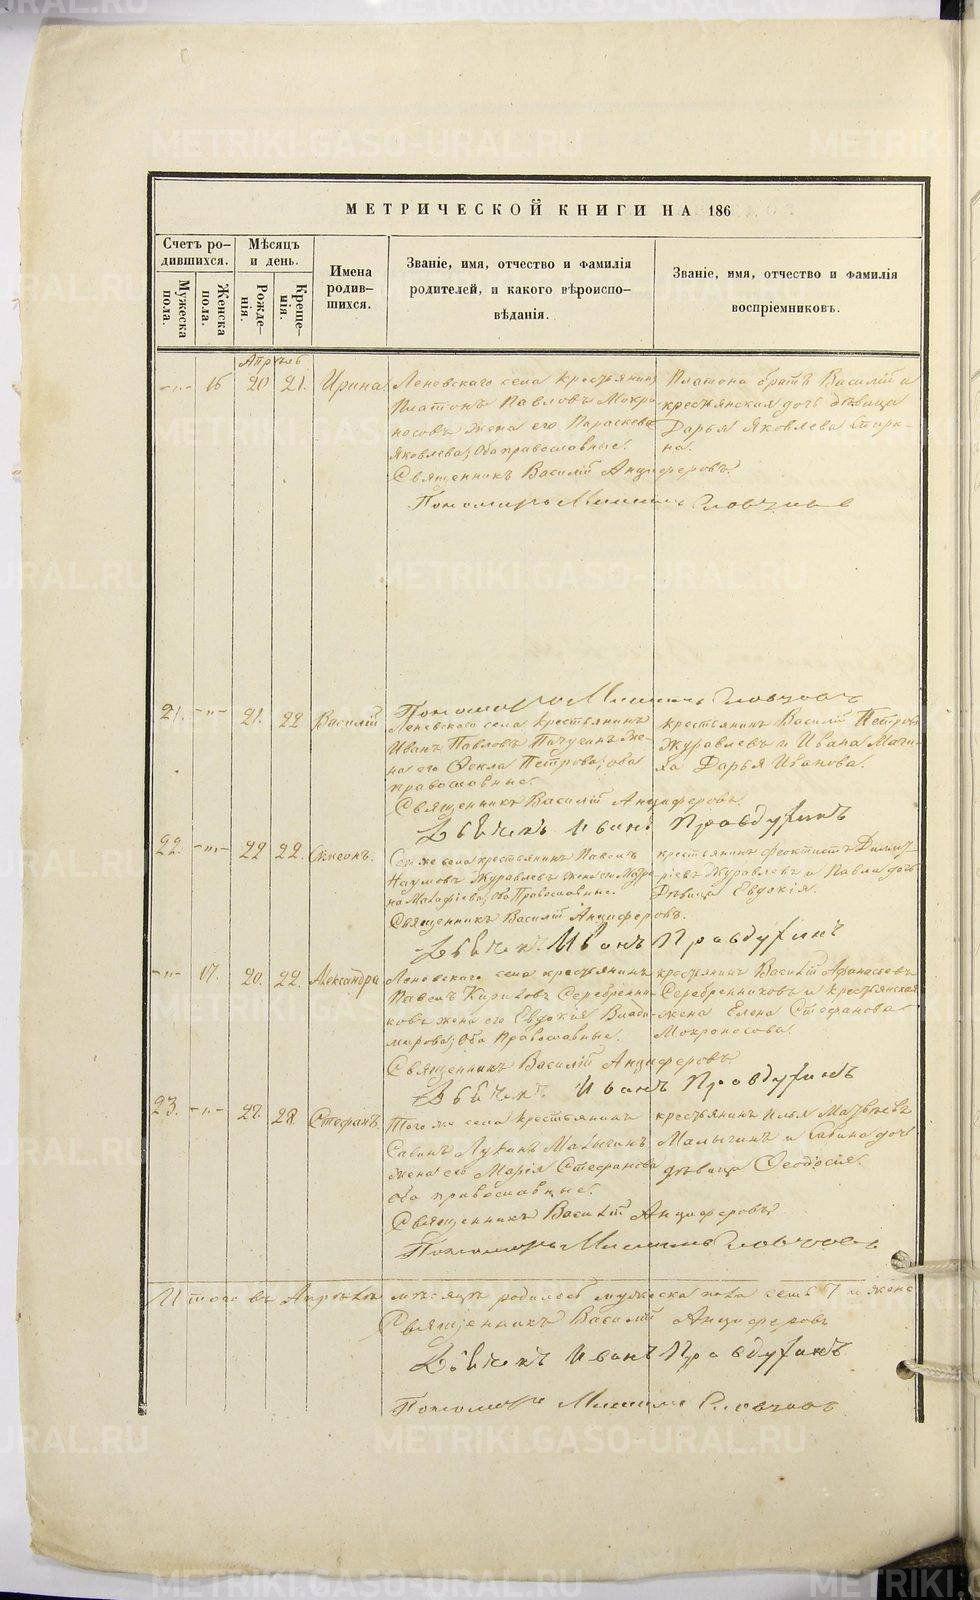 МЕТРИЧЕСКОЙ КНИГИ НА 186
Счетъ ро-
дившихся.
Мужеска
пола.
Женска
пола.
Мѣсяцъ
и день.
Рожде-
нія.
Креще-
нія.
Имена
родив-
шихся.
Званіе, имя, отчество и фамилія
родителей, и какого вѣроиспо-
вѣданія.
Званіе, имя, отчество и фамилія
воспріемниковъ.
Апрѣль
16 20 21. Ирина
Леневскаго села крестьянинъ
Платонъ Павловъ Мокро-
носовъ жена его Параскева
Яковлева; оба православные.
Платона братъ Василій и
крестьянская дочь дѣвица
Дарья Яковлева
Священникъ Василій Анциферовъ.
Пономарь Словцовъ
Пономарь Словцовъ
21. 21. 22 Василій
Леневскаго села крестьянинъ
Иванъ Павловъ Пичугинъ же-
на его Ѳекла Петрова; оба
православные.
крестьянинъ Василій Петровъ
Журавлевъ и Ивана
Дарья Иванова.
Священникъ Василій Анциферовъ.
Иванъ Правдухинъ
22. 22 22. Симеонъ.
Того же села крестьянинъ Павелъ
Наумовъ Журавлевъ жена его Матре-
на оба Православные.
крестьянинъ Феоктистъ Димит-
ріевъ Журавлевъ и Павла дочь
Дѣвица Евдокія.
Священникъ Василій Анциферовъ.
Иванъ Правдухинъ
17. 20. 22. Александра
Леневскаго села крестьянинъ
Павелъ Кириловъ Серебрени-
ковъ жена его Евдокія Влади-
мирова; Оба Православные.
крестьянинъ Василій Афанасьевъ
Серебренниковъ и крестьянская
жена Елена Стефанова
Мокроносова.
Священникъ Василій Анциферовъ.
Иванъ Правдухинъ
23. 27. 28. Стефанъ.
Того же села крестьянинъ
Савинъ Лукинъ Малыгинъ
жена его Марія Стефанова
оба православные.
крестьянинъ Илья Матвѣевъ
Малыгинъ и Савина дочь
дѣвица Ѳеодосія.
Священникъ Василій Анциферовъ
Пономарь Словцовъ
Итого въ Апрѣлѣ мѣсяцѣ родилось мужеска пола семь 7 и женс
Священникъ Василій Анциферовъ
Иванъ Правдухинъ
Пономарь Словцовъ
METRIKI.GASO-URAL.RU